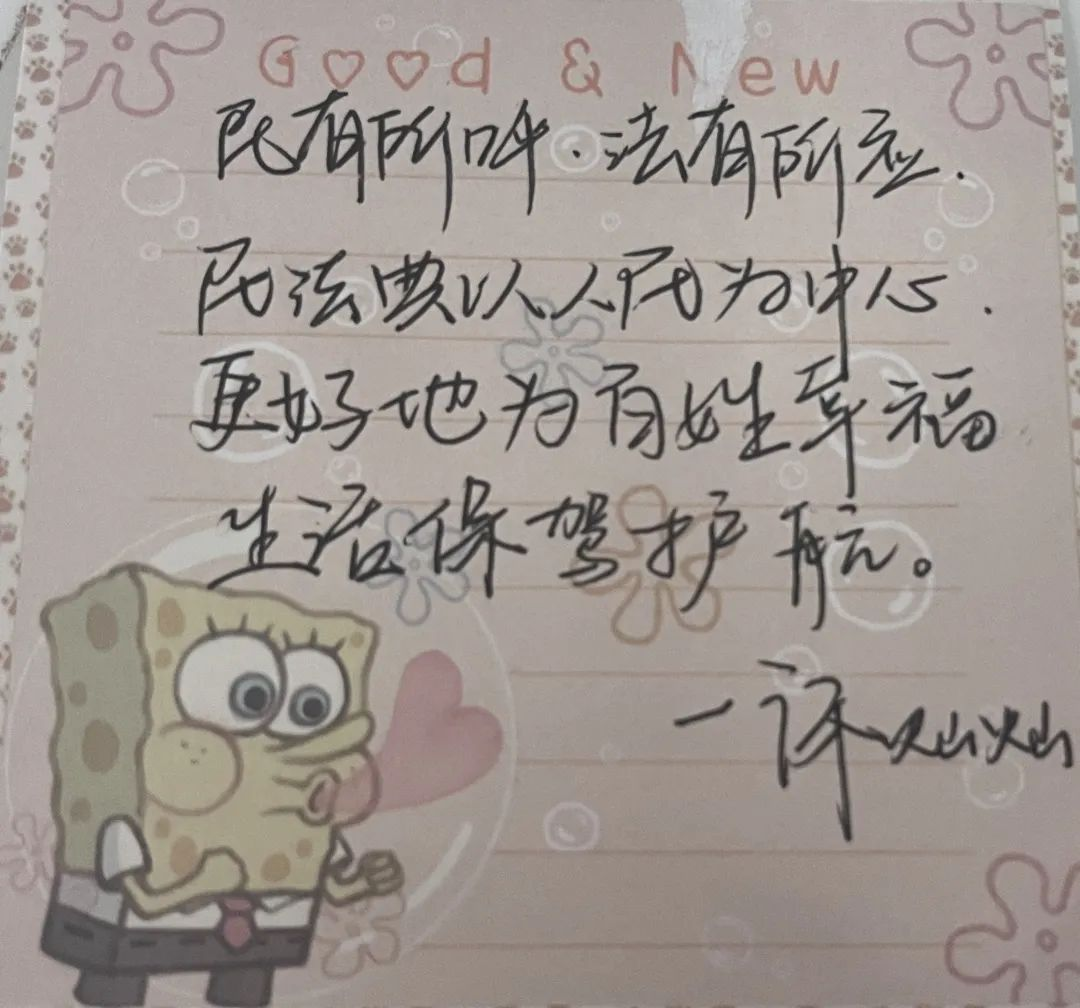 Good & New
民有所呼.法有所应.
民法典以人民为中心.
更好地为百姓幸福
生活保驾护航。
一许灿灿